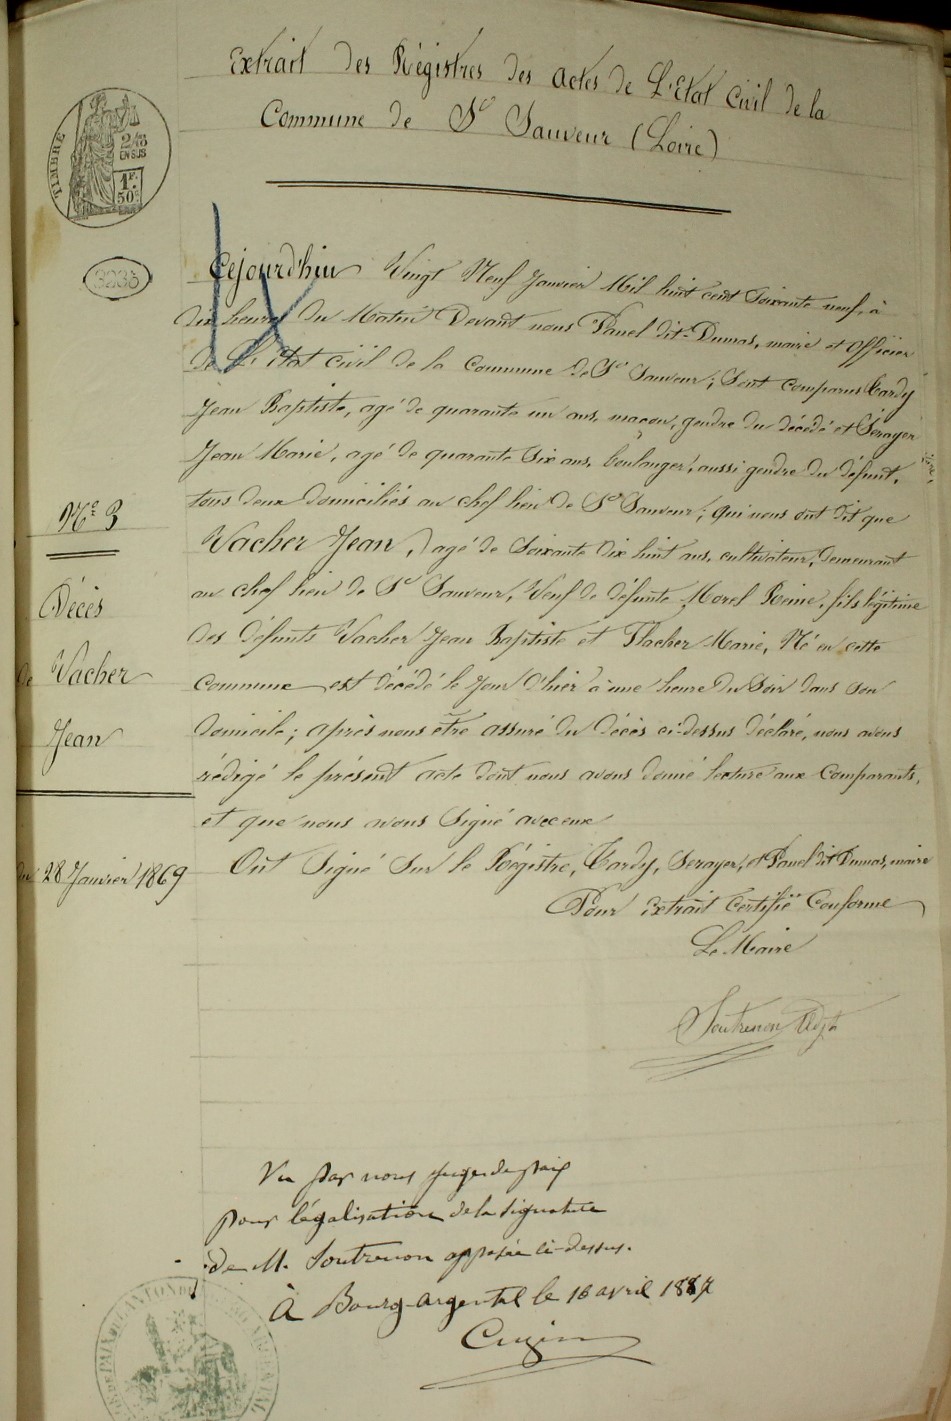 Extrait des Régistres des actes de L'Etat Civil de la
Commune de St Sauveur (Loire)
TIMBRE
2/10
EN SUS
1F.
50c
Cejourd'hui Vingt Neuf Janvier Mil huit cent soixante neuf, à
dix heures du Matin Devant nous Panel dit-Dumas, maire et officier
de L'état civil de la Commune de St Sauveur; Sont comparus Tardy
Jean Baptiste, agé de quarante un ans, maçon, gendre du décédé et Serayer
Jean Marie, agé de quarante six ans, boulanger, aussi gendre du défunt,
tous deux domiciliés au chef lieu de St Sauveur; qui nous ont dit que
Vacher Jean, agé de soixante dix huit ans, cultivateur, demeurant
au chef lieu de St Sauveur, Veuf de défunte Morel Reine, fils légitime
des défunts Vacher Jean Baptiste et Flacher Marie, Né en cette
commune est décédé le jour d'hier à une heure du soir dans son
domicile; après nous être assuré du décès ci-dessus déclaré, nous avons
rédigé le présent acte dont nous avons donné lecture aux comparants,
et que nous avons signé avec eux
Ont signé sur le Régistre, Tardy, Serayer, et Panel dit Dumas, maire
Pour extrait certifié conforme
Le Maire
Soutrenon Adjt
No 3
Décès
de Vacher
Jean
du 28 Janvier 1869
Vu par nous juge de paix
pour légalisation de la signature
de M. Soutrenon apposée ci-dessus.
À Bourg-Argental le 16 avril 1887
Cuzin